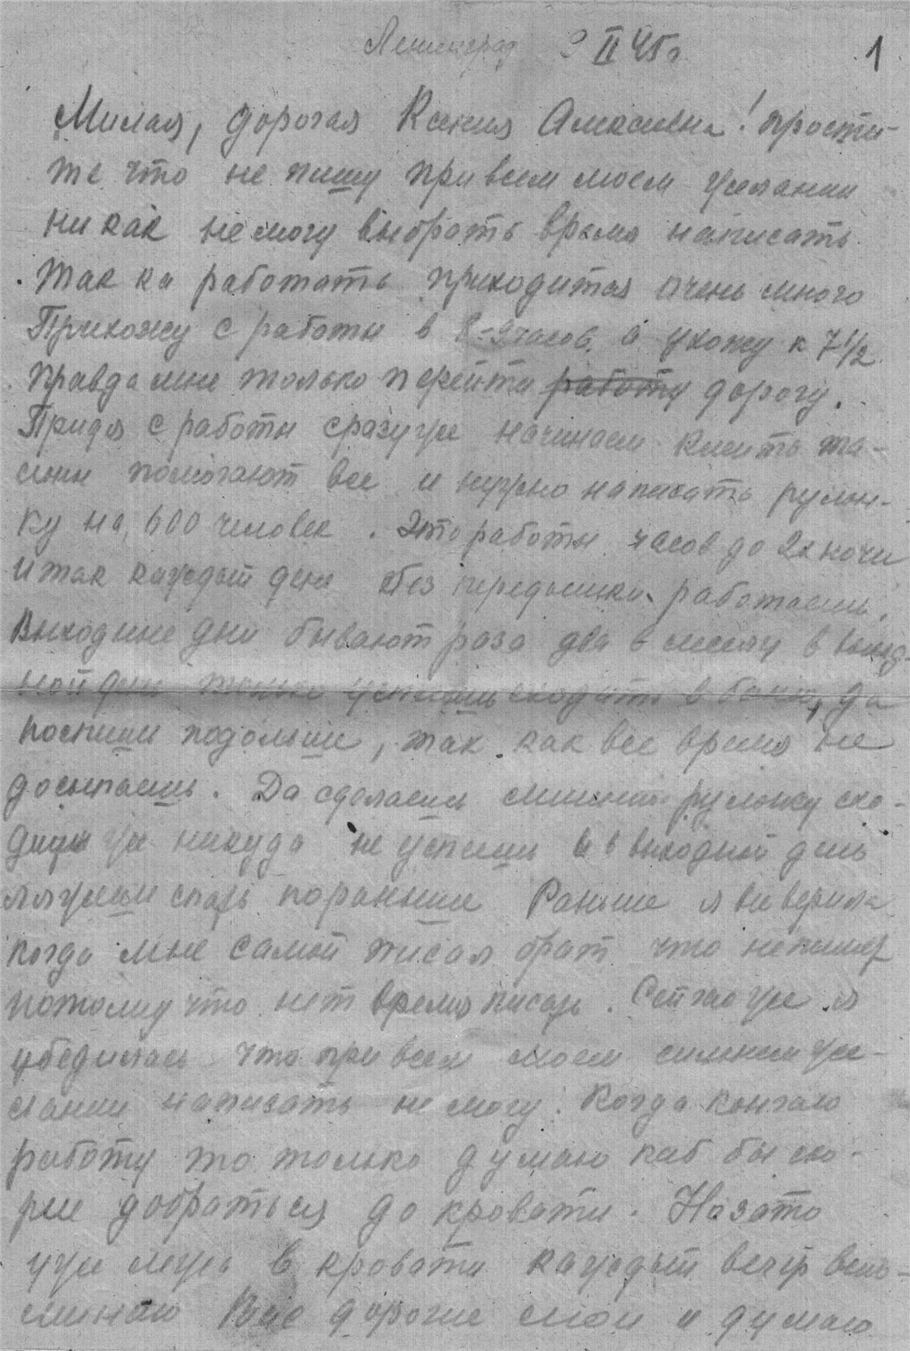 Ленинград 9 II 45г 1
Милая, дорогая Ксения Алексеевна! прости-
те что не пишу при всем моем желании
ни как не могу выбрать время написать.
Так ка работать приходится очень много
Прихожу с работы в 8-9 часов. а ухожу к 7½
правда мне только перейти работу дорогу.
Придя с работы сразу же начинаем клеить та-
помогают все и нужно написать
ку на 600 человек. Это работы часов до 2х ночи
и так каждый день без передышки работаешь.
Выходные дни бывают раза два в месяц в выход-
ной день только успеешь сходить в баню, да
поспиш подольше, так как все время не
досыпаешь. Да сделаешь схо-
уж никуда не успееш и в выходной день
спать пораньше Раньше я не верила
когда мне самой писал брат что не пишет
потому что нет время писать. Сейчас же я
убедилась что при всем моем сильном же-
лании написать не могу. Когда кончаю
работу то только думаю каб бы ско-
рее добраться до кровати. Назато
уже в кровати каждый вечер вспо-
минаю Вас дорогие мои и думаю